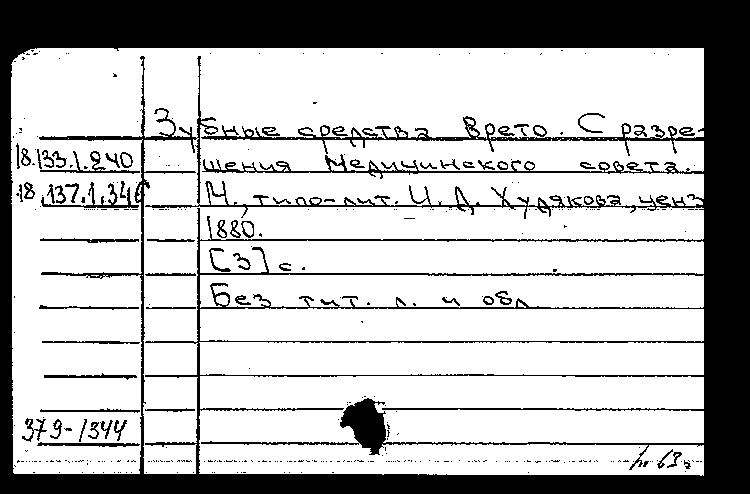 Зубные средства Врето. С разре-
18.133.1.240 шения Медицинского совета.
18.137.1.346 М., типо-лит. И. Д. Худякова, ценз.
1880.
[3] с.
Без тит. л. и обл.
379-1344